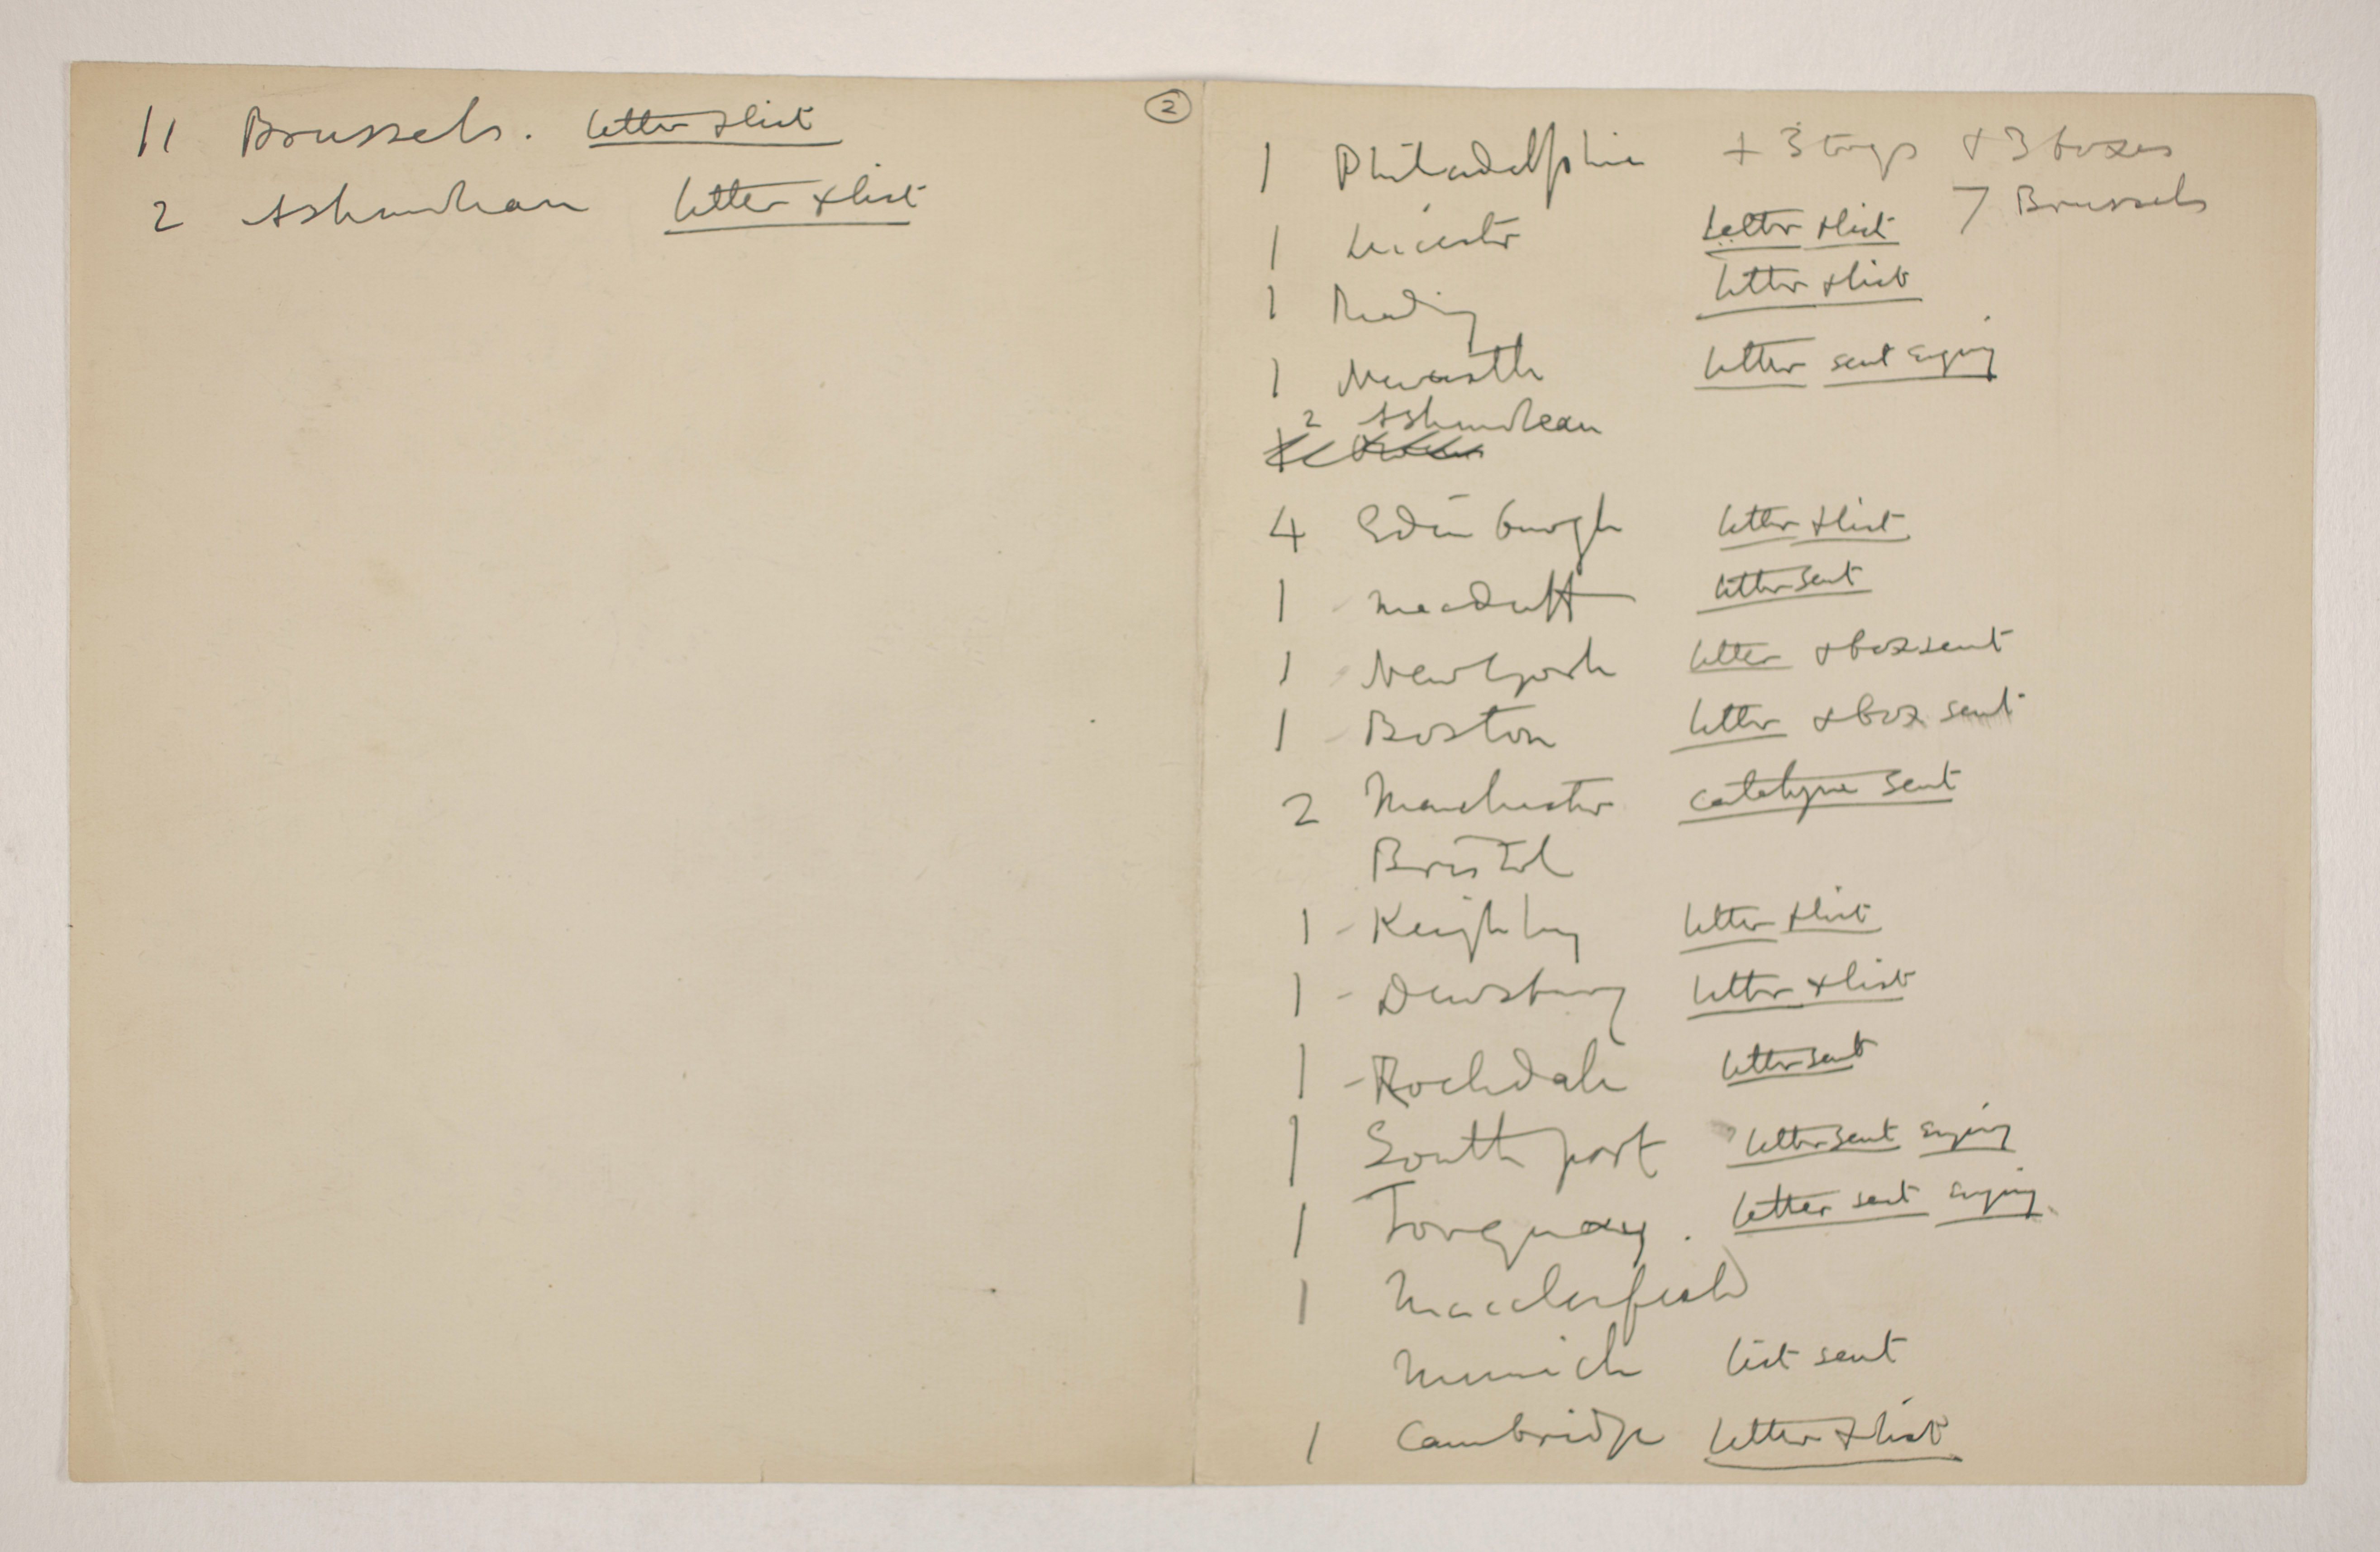 11 Brussels. letter + list
2 Ashmolean letter + list
2
1 Philadelphia + 3 togs + 3 boxes
7 Brussels
1 Leicester letter + list
1 Reading letter + list
1 Newcastle letter sent enquiring
2 Ashmolean
4 Edinburgh letter + list
1 macduff letter sent
1 New York letter + box sent
1 Boston letter + box sent
2 Manchester catalogue sent
Bristol
1 - Keighley letter + list
1 - Dewsbury letter + list
1 - Rochdale letter sent
1 Southport letter sent
1 Torquay. letter sent
1 Macclesfield
Munich list sent
1 Cambridge letter + list